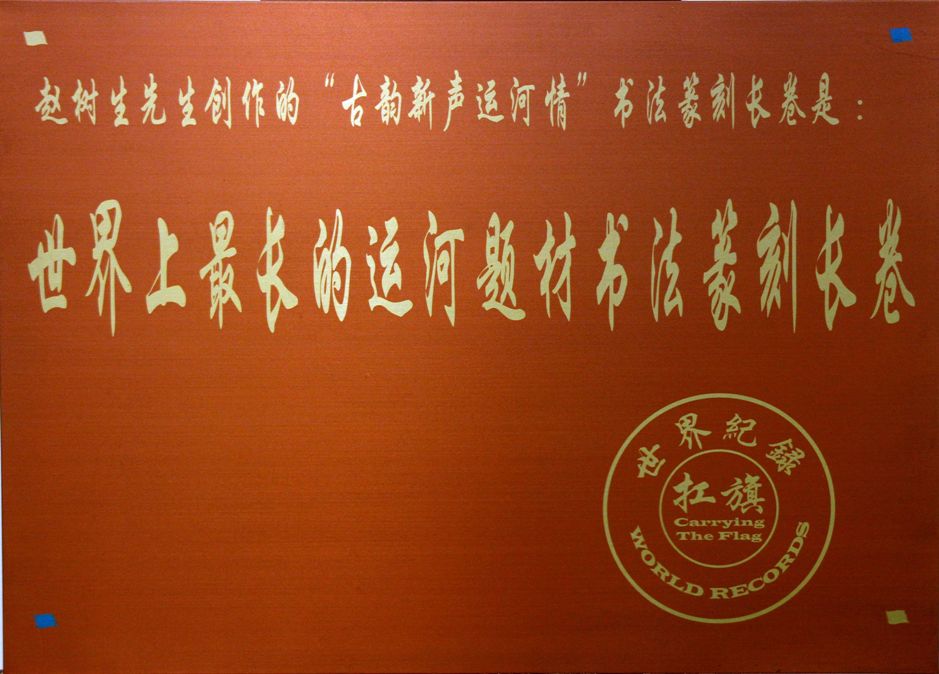 赵树生先生创作的“古韵新声运河情”书法篆刻长卷是：
世界上最长的运河题材书法篆刻长卷
世界紀録
扛旗
Carrying
The Flag
WORLD RECORDS